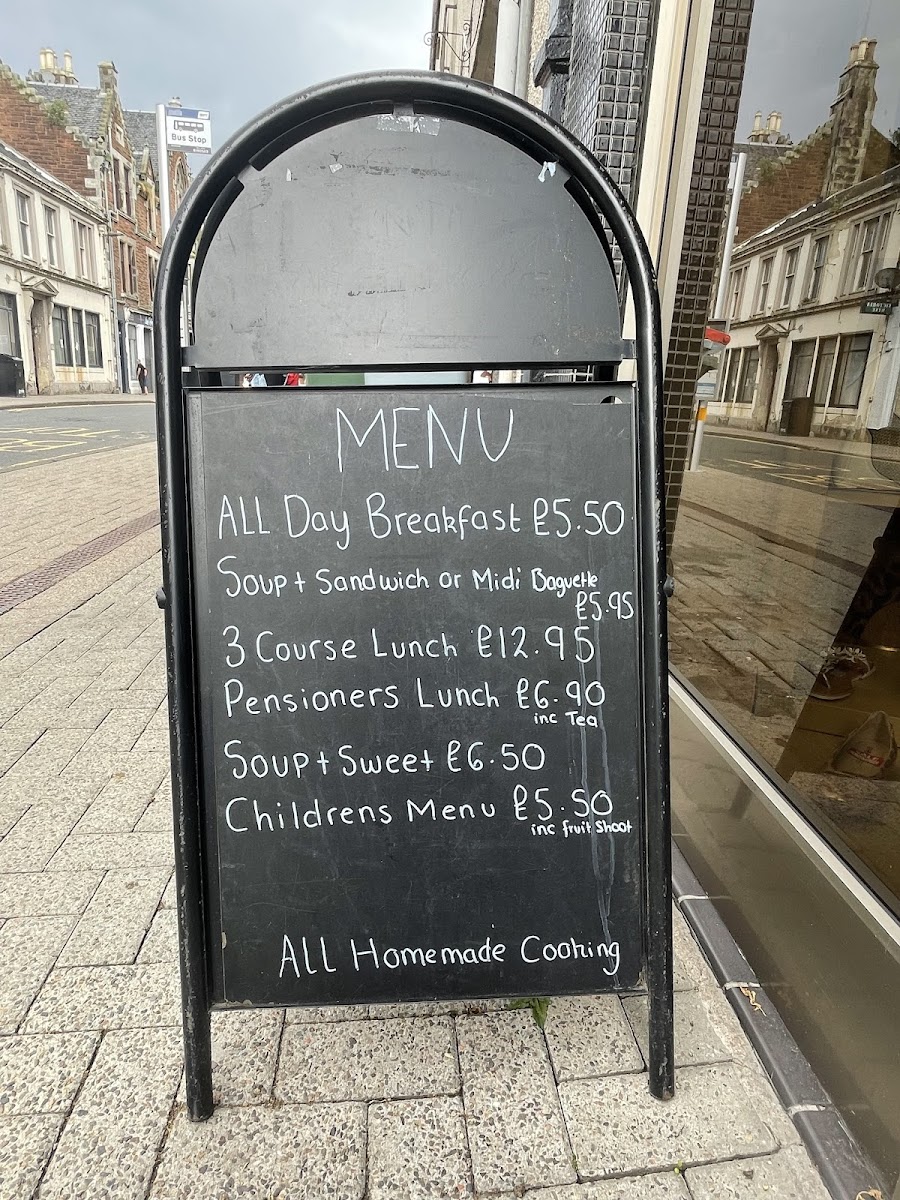 Bus Stop
MENU
ALL Day Breakfast £5.50
Soup + Sandwich or Midi Baguette
£5.95
3 Course Lunch £12.95
Pensioners Lunch £6.90
inc Tea
Soup + Sweet £6.50
Childrens Menu £5.50
inc fruit Shoot
ALL Homemade Cooking